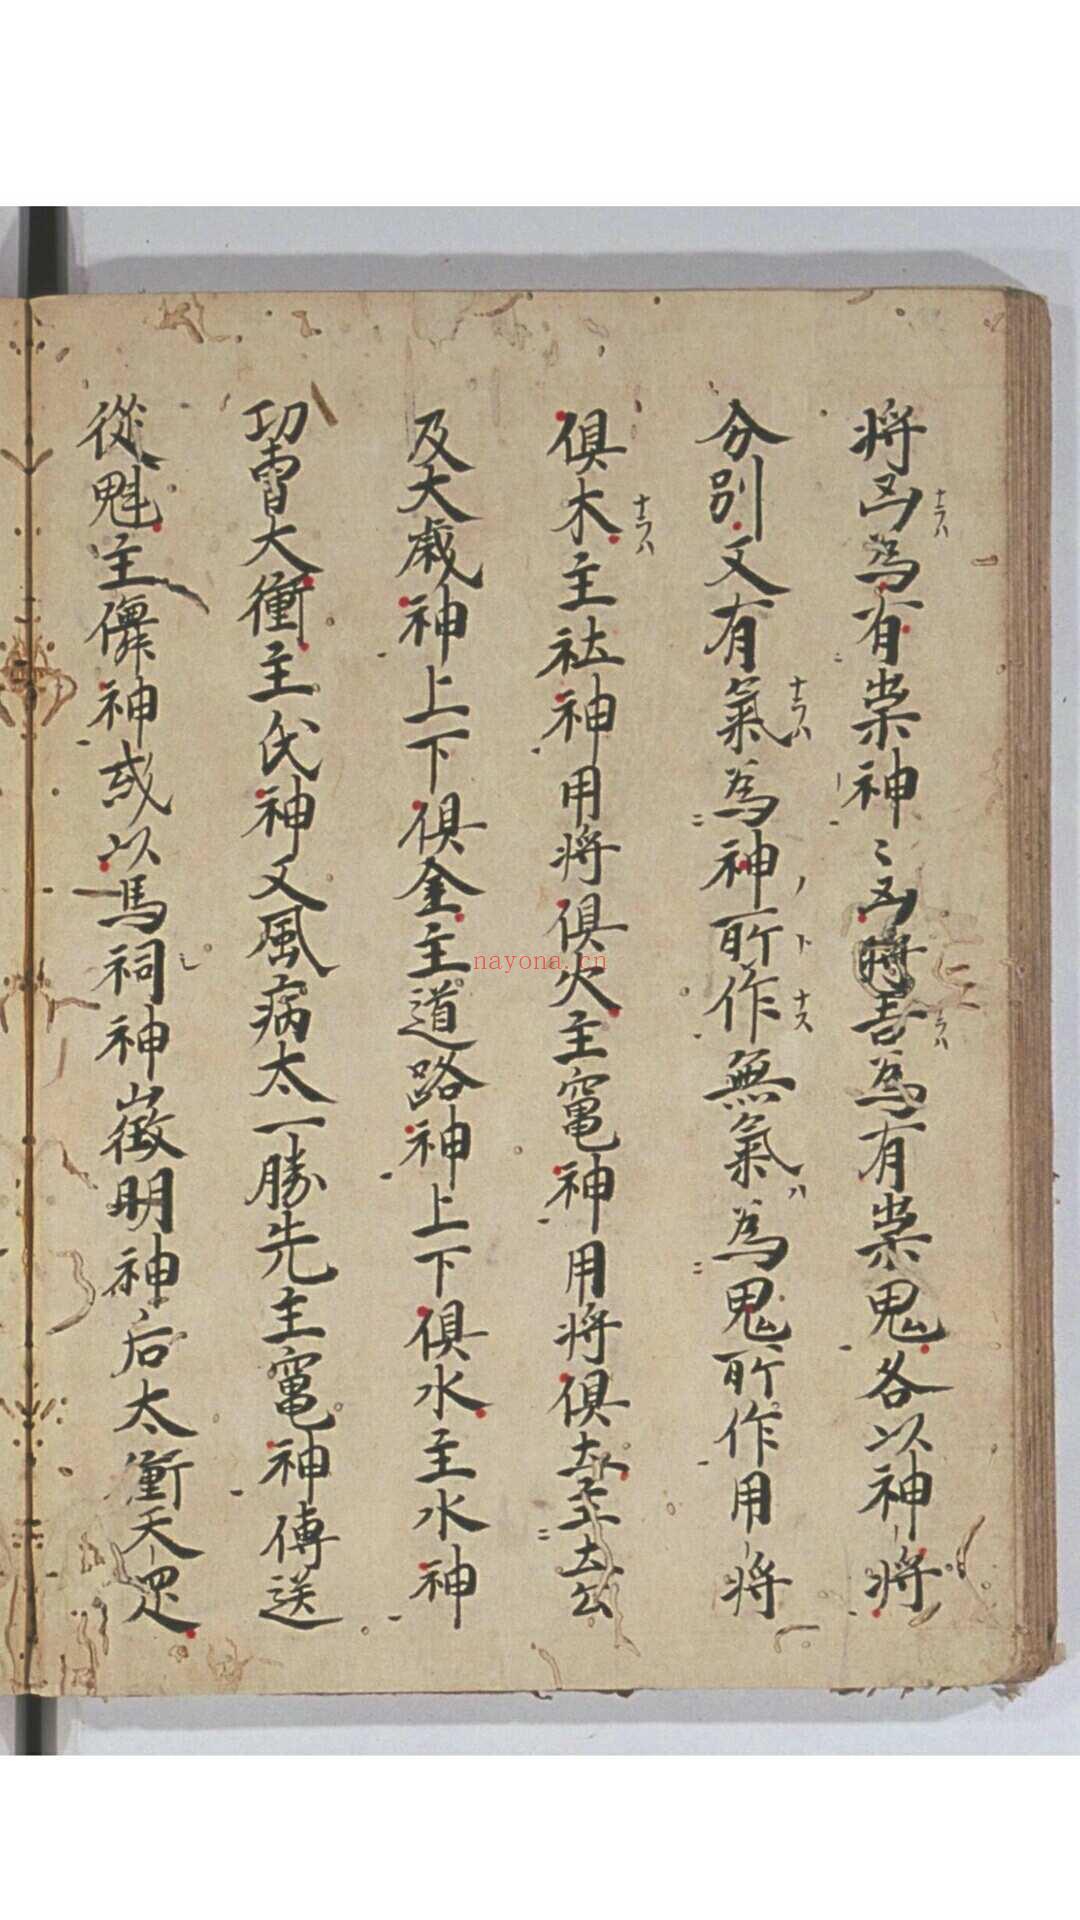 将凶為有祟神〻凶将吉為有祟鬼各以神将
分別又有氣為神所作無氣為鬼所作用将
俱木主社神用将俱火主竃神用将俱土主土公
及大歳神上下俱金主道路神上下俱水主水神
功曹大衝主氏神又風病太一勝先主竃神傳送
從魁主儛神或以馬祠神徵明神后太衝天
ナラハ
ナラハ
ナラハ
ナラハ
ノ
ト
ナス
ハ
nayona.cn